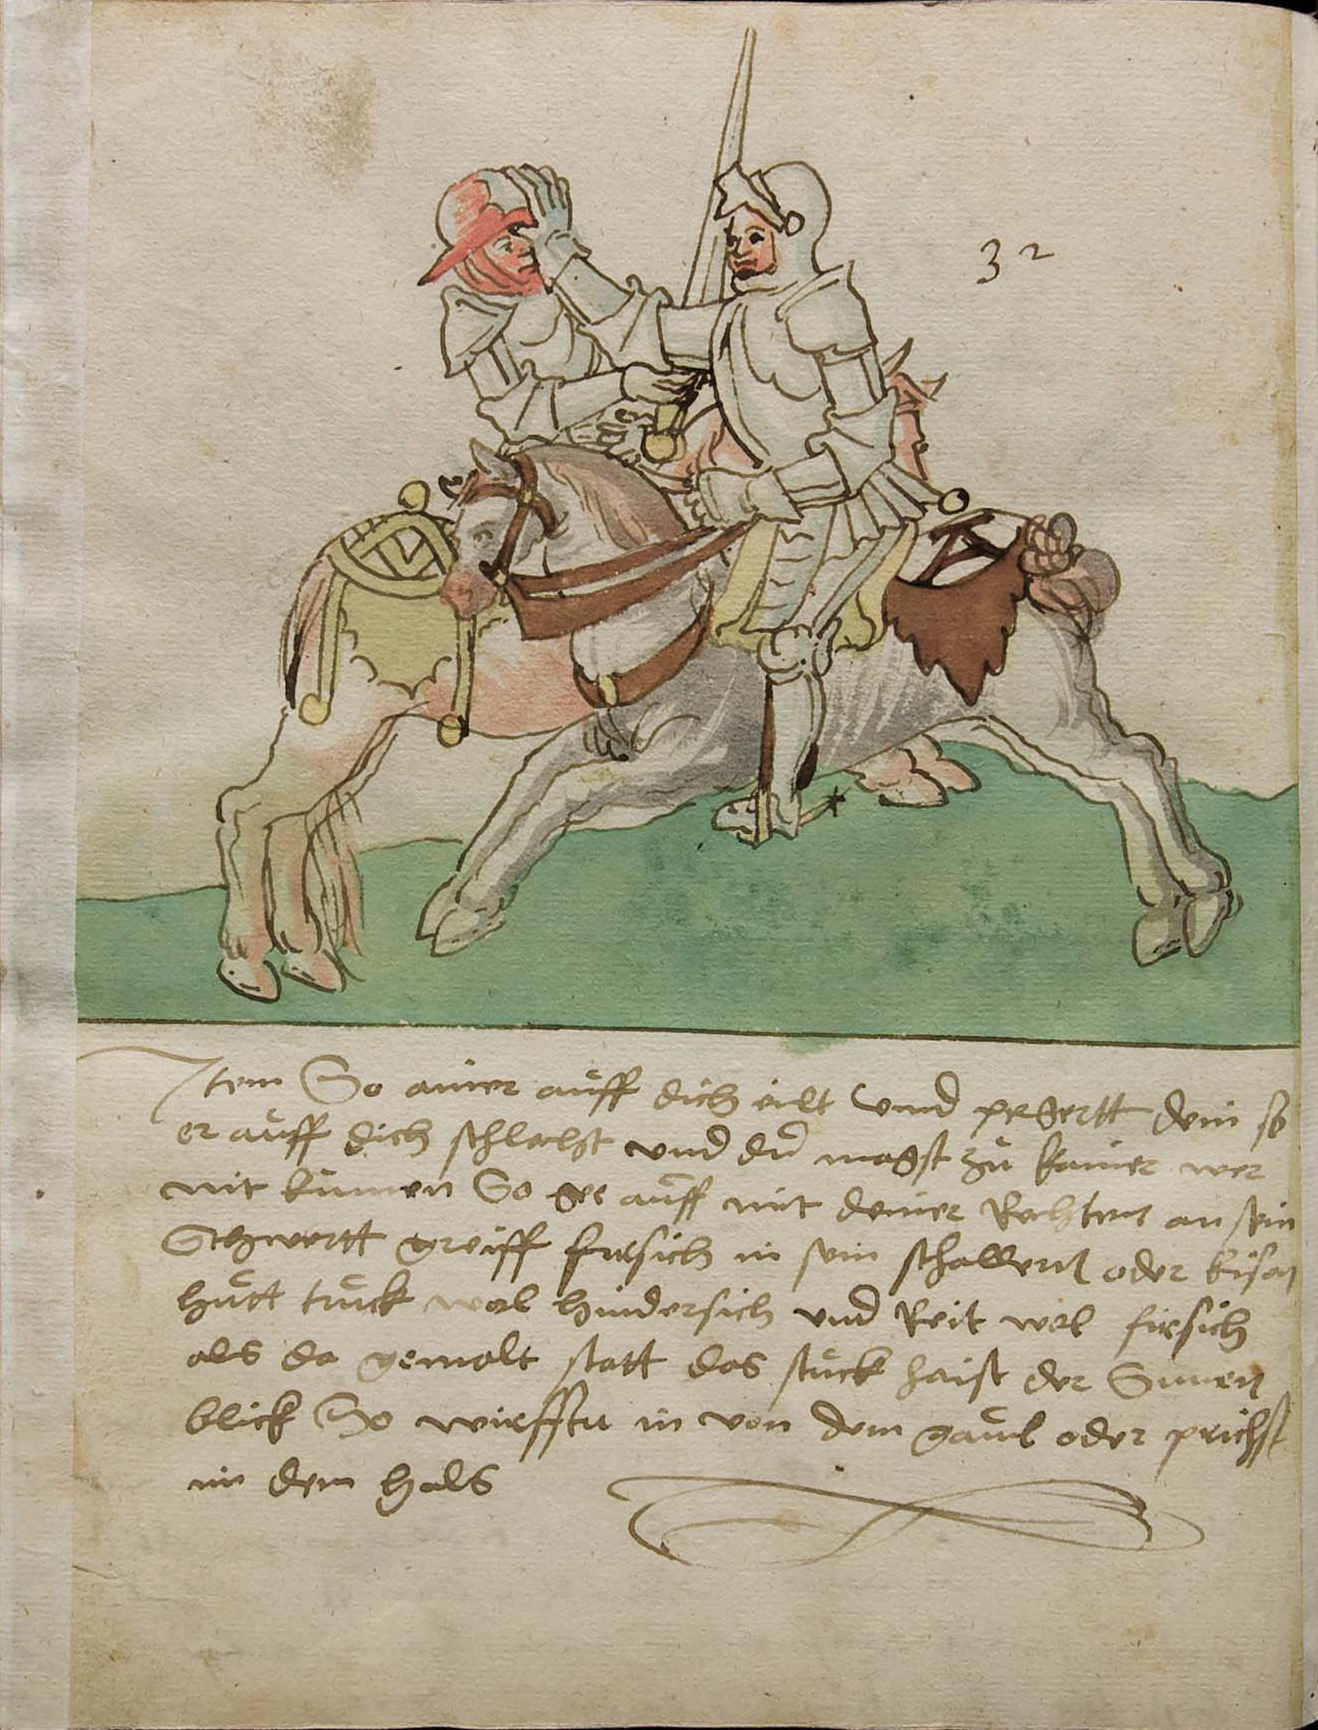 32
Item So ainer auff dich eilt vnnd pegertt dein so
er auff dich schlecht vnd du magst zu kainer wer
nit kumen So ge auff mit deiner Rechten an sein
Schwertt greiff fursich in sein schallern oder eisen
hutt truck wol hindersich vnd Reit wol firsich
als da gemalt statt das stuck haist der Sunnen
blick So wirfstu in von dem gaul oder prichst
im den hals